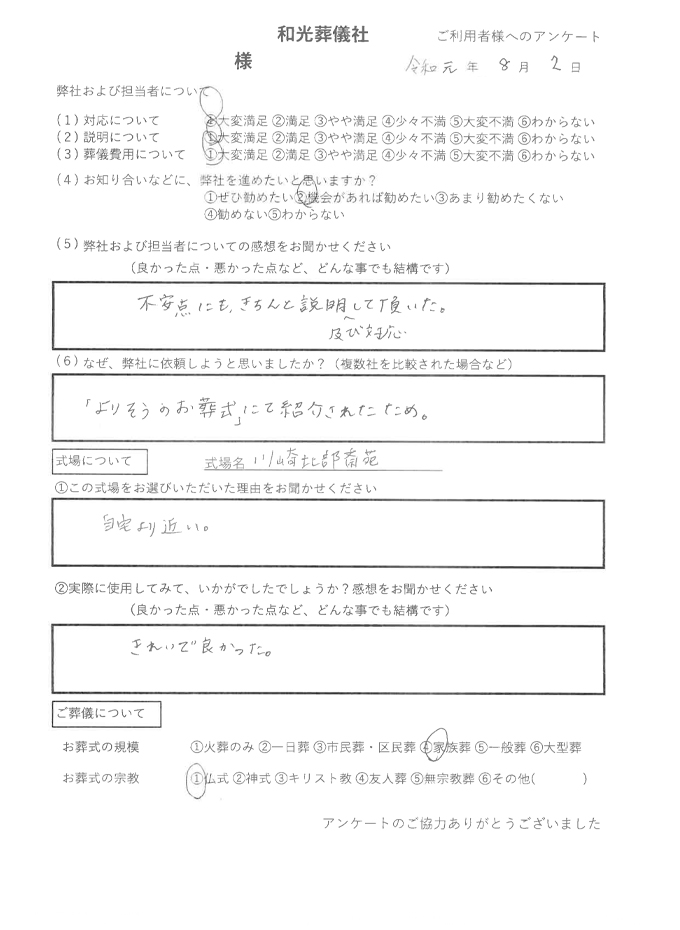 和光葬儀社
ご利用者様へのアンケート
様
令和元年 8月 2日
弊社および担当者について
(1) 対応について ①大変満足 ②満足 ③やや満足 ④少々不満 ⑤大変不満 ⑥わからない
(2) 説明について ①大変満足 ②満足 ③やや満足 ④少々不満 ⑤大変不満 ⑥わからない
(3) 葬儀費用について ①大変満足 ②満足 ③やや満足 ④少々不満 ⑤大変不満 ⑥わからない
(4) お知り合いなどに、弊社を進めたいと思いますか？
①ぜひ勧めたい②機会があれば勧めたい③あまり勧めたくない
④勧めない⑤わからない
(5) 弊社および担当者についての感想をお聞かせください
（良かった点・悪かった点など、どんな事でも結構です）
不安点にも、きちんと説明して頂いた。
及び対応
(6) なぜ、弊社に依頼しようと思いましたか？（複数社を比較された場合など）
「よりそうのお葬式」にて紹介されたため。
式場について 式場名 川崎北部斎苑
①この式場をお選びいただいた理由をお聞かせください
自宅より近い。
②実際に使用してみて、いかがでしたでしょうか？感想をお聞かせください
（良かった点・悪かった点など、どんな事でも結構です）
きれいで良かった。
ご葬儀について
お葬式の規模 ①火葬のみ ②一日葬 ③市民葬・区民葬 ④家族葬 ⑤一般葬 ⑥大型葬
お葬式の宗教 ①仏式 ②神式 ③キリスト教 ④友人葬 ⑤無宗教葬 ⑥その他( )
アンケートのご協力ありがとうございました